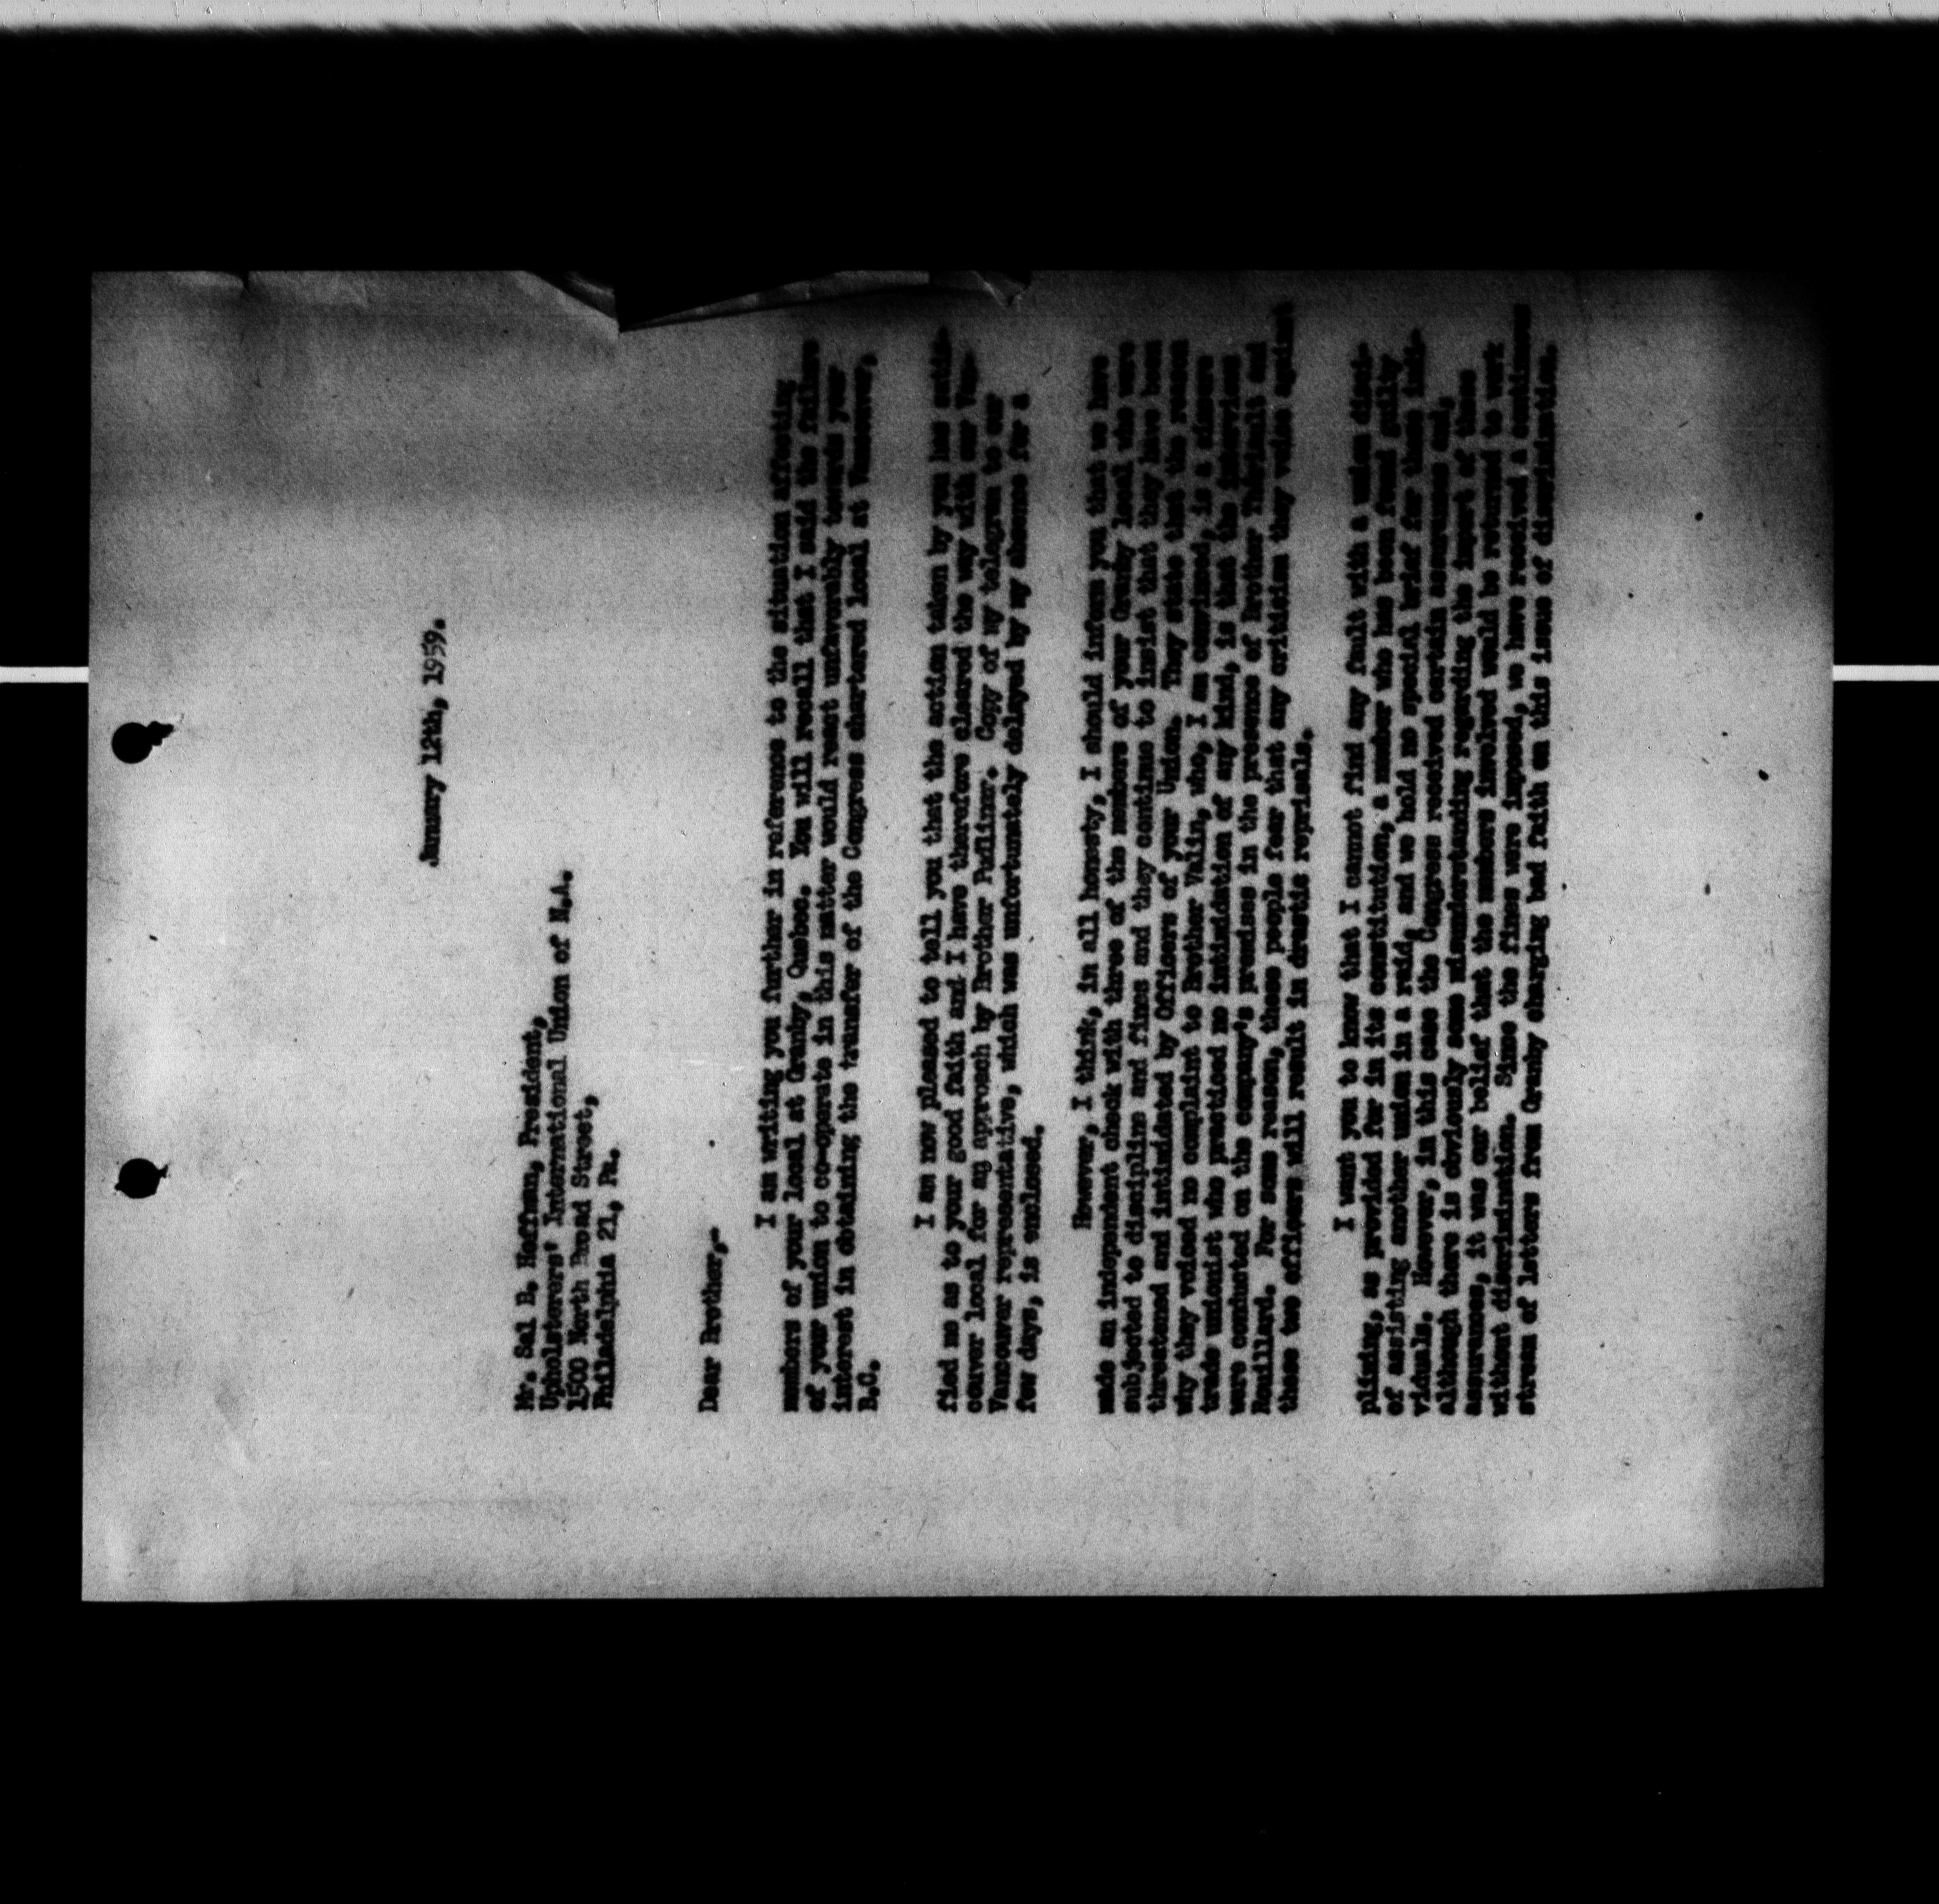 January 12th, 1959.
Mr. Sal B. Hoffman, President,
Upholsterers' International Union of N.A.
1500 North Broad Street,
Philadelphia 21, Pa.
Dear Brother,-
I am writing you further in reference to the situation affecting
members of your local at Granby, Quebec. You will recall that I said the failure
of your union to co-operate in this matter would react unfavourably towards your
interest in obtaining the transfer of the Congress chartered local at Vancouver,
B.C.
I am now pleased to tell you that the action taken by you has satis-
fied me as to your good faith and I have therefore cleared the way with our Van-
couver local for an approach by Brother Pudliner. Copy of my telegram to our
Vancouver representative, which was unfortunately delayed by my absence for a
few days, is enclosed.
However, I think, in all honesty, I should inform you that we have
made an independent check with three of the members of your Granby local who were
subjected to discipline and fines and they continue to insist that they have been
threatened and intimidated by Officers of your Union. They state that the reason
why they voiced no complaint to Brother Valin, who, I am convinced, is a sincere
trade unionist who practiced no intimidation of any kind, is that the interviews
were conducted on the company's premises in the presence of Brother Thériault and
Rouillard. For some reason, these people fear that any criticism they voice against
these two officers will result in drastic reprisals.
I want you to know that I cannot find any fault with a union disci-
plining, as provided for in its constitution, a member who has been found guilty
of assisting another union in a raid, and we hold no special brief for these indi-
viduals. However, in this case the Congress received certain assurances and,
although there is obviously some misunderstanding regarding the import of these
assurances, it was our belief that the members involved would be returned to work
without discrimination. Since the fines were imposed, we have received a continuous
stream of letters from Granby charging bad faith on this issue of discrimination.